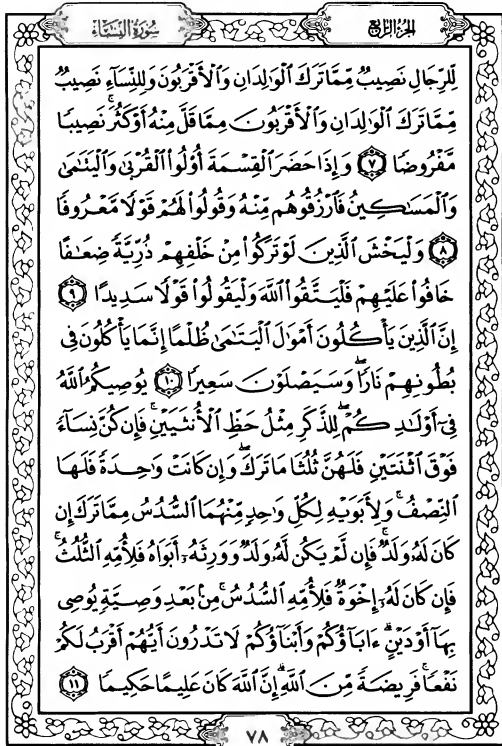 سُورَةُ النِّسَاءِ
الجُزْءُ الرَّابِعُ
لِّلرِّجَالِ نَصِيبٌ مِّمَّا تَرَكَ الْوَالِدَانِ وَالْأَقْرَبُونَ وَلِلنِّسَاءِ نَصِيبٌ
مِّمَّا تَرَكَ الْوَالِدَانِ وَالْأَقْرَبُونَ مِمَّا قَلَّ مِنْهُ أَوْ كَثُرَ ۚ نَصِيبًا
مَّفْرُوضًا ٧ وَإِذَا حَضَرَ الْقِسْمَةَ أُوْلُواْ الْقُرْبَىٰ وَالْيَتَٰمَىٰ
وَالْمَسَٰكِينُ فَارْزُقُوهُم مِّنْهُ وَقُولُواْ لَهُمْ قَوْلًا مَّعْرُوفًا
٨ وَلْيَخْشَ الَّذِينَ لَوْ تَرَكُواْ مِنْ خَلْفِهِمْ ذُرِّيَّةً ضِعَٰفًا
خَافُواْ عَلَيْهِمْ فَلْيَتَّقُواْ اللَّهَ وَلْيَقُولُواْ قَوْلًا سَدِيدًا ٩
إِنَّ الَّذِينَ يَأْكُلُونَ أَمْوَٰلَ الْيَتَٰمَىٰ ظُلْمًا إِنَّمَا يَأْكُلُونَ فِي
بُطُونِهِمْ نَارًا ۖ وَسَيَصْلَوْنَ سَعِيرًا ١٠ يُوصِيكُمُ اللَّهُ
فِي أَوْلَٰدِكُمْ ۖ لِلذَّكَرِ مِثْلُ حَظِّ الْأُنثَيَيْنِ ۚ فَإِن كُنَّ نِسَاءً
فَوْقَ اثْنَتَيْنِ فَلَهُنَّ ثُلُثَا مَا تَرَكَ ۖ وَإِن كَانَتْ وَٰحِدَةً فَلَهَا
النِّصْفُ ۚ وَلِأَبَوَيْهِ لِكُلِّ وَٰحِدٍ مِّنْهُمَا السُّدُسُ مِمَّا تَرَكَ إِن
كَانَ لَهُۥ وَلَدٌ ۚ فَإِن لَّمْ يَكُن لَّهُۥ وَلَدٌ وَوَرِثَهُۥ أَبَوَاهُ فَلِأُمِّهِ الثُّلُثُ ۚ
فَإِن كَانَ لَهُۥ إِخْوَةٌ فَلِأُمِّهِ السُّدُسُ ۚ مِنۢ بَعْدِ وَصِيَّةٍ يُوصِي
بِهَا أَوْ دَيْنٍ ۗ ءَابَاؤُكُمْ وَأَبْنَاؤُكُمْ لَا تَدْرُونَ أَيُّهُمْ أَقْرَبُ لَكُمْ
نَفْعًا ۚ فَرِيضَةً مِّنَ اللَّهِ ۗ إِنَّ اللَّهَ كَانَ عَلِيمًا حَكِيمًا ١١
٧٨